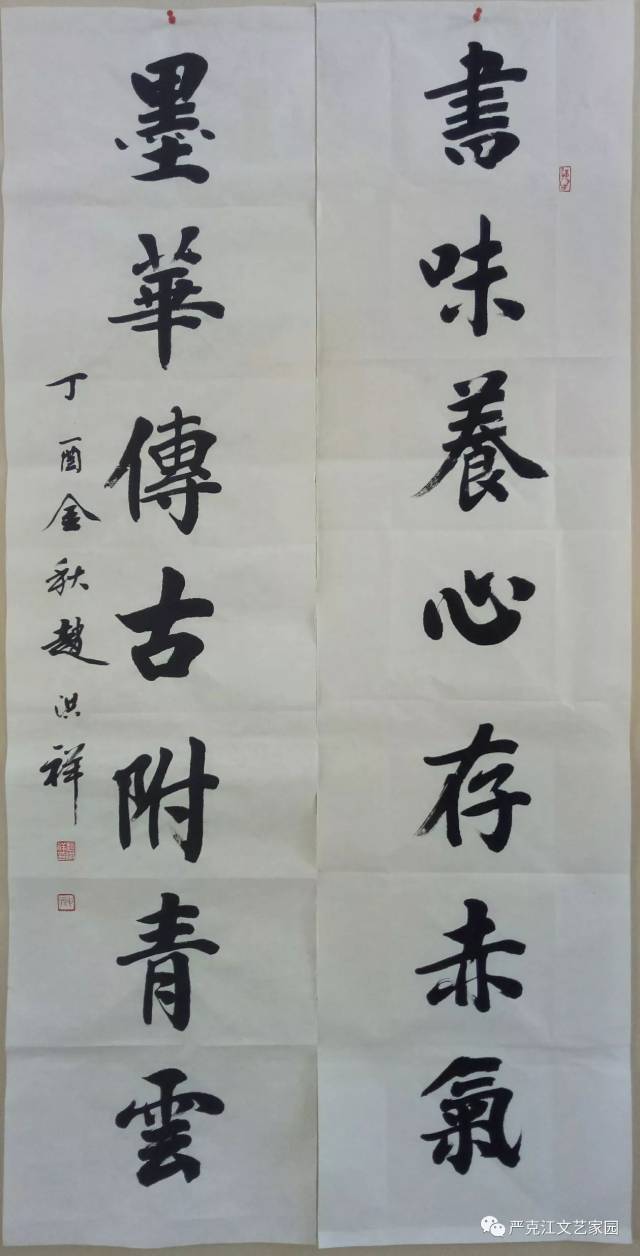 書味養心存赤氣
墨華傳古附青雲
丁酉金秋趙洪祥
严克江文艺家园